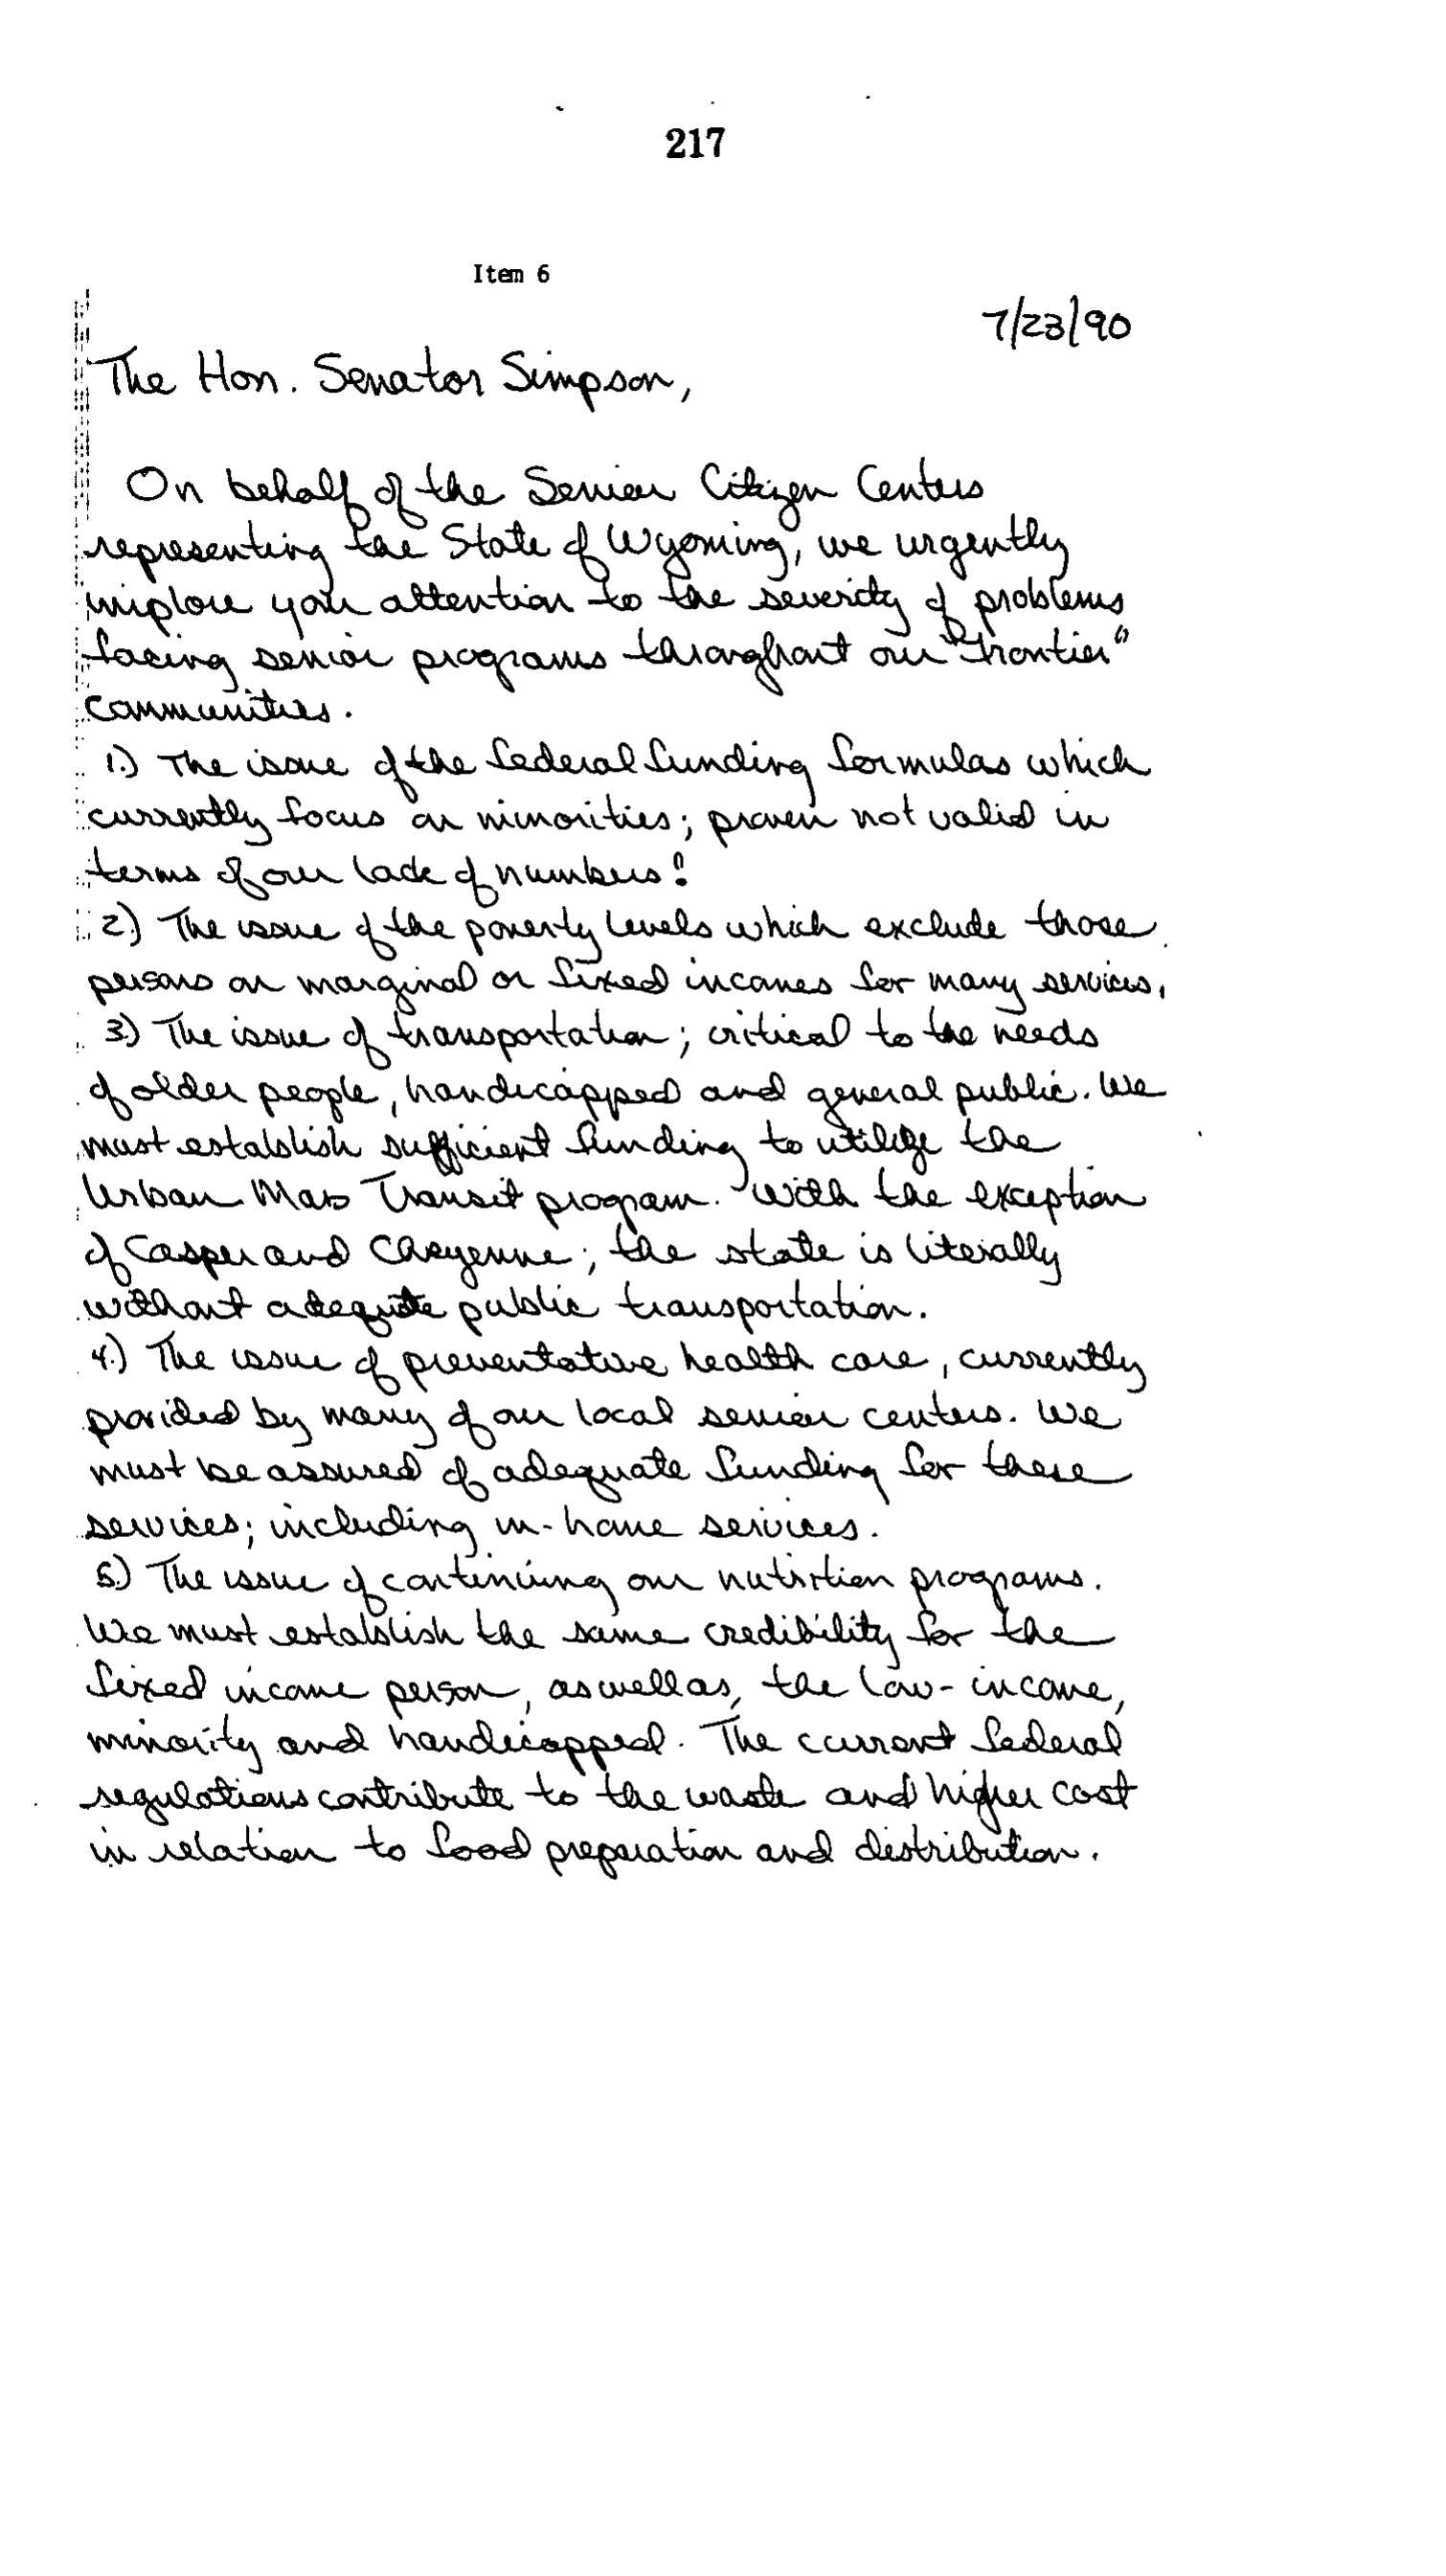 217
Item 6
7/23/90
The Hon. Senator Simpson,
On behalf of the Senior Citizen Centers
representing the State of Wyoming, we urgently
implore your attention to the severity of problems
facing senior programs throughout our "frontier"
communities.
1.) The issue of the federal funding formulas which
currently focus on minorities; proven not valid in
terms of our lack of numbers!
2.) The issue of the poverty levels which exclude those
persons on marginal or fixed incomes for many services.
3.) The issue of transportation; critical to the needs
of older people, handicapped and general public. We
must establish sufficient funding to utilize the
Urban Mass Transit program. With the exception
of Casper and Cheyenne; the state is literally
without adequate public transportation.
4.) The issue of preventative health care, currently
provided by many of our local senior centers. We
must be assured of adequate funding for these
services; including in-home services.
5.) The issue of continuing our nutrition programs.
We must establish the same credibility for the
fixed income person, as well as, the low-income,
minority and handicapped. The current federal
regulations contribute to the waste and higher cost
in relation to food preparation and distribution.